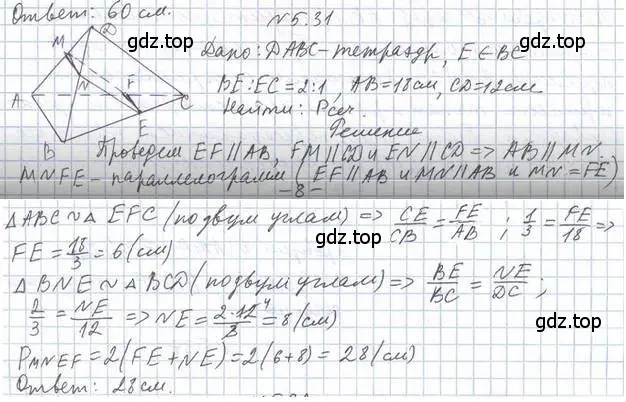 Ответ: 60 см.
№5.31
gdz.top
gdz.top
Дано: DABC-тетраэдр, E∈BC
BE:EC=2:1, AB=18см, CD=12см.
Найти: Pсеч.
Решение
M D N F A C E B
Проведем EF||AB, FM||CD и EN||CD => AB||MN.
MNFE-параллелограмм (EF||AB и MN||AB и MN=FE)
-8-
△ABC∾△EFC (по двум углам) => CE/CB = FE/AB ; 1/3 = FE/18 =>
FE = 18/3 = 6 (см)
gdz.top
△BNE∾△BCD (по двум углам) => BE/BC = NE/DC ;
2/3 = NE/12 => NE = 2·12⁴/3 = 8 (см)
gdz.top
P MNEF = 2(FE+NE) = 2(6+8) = 28 (см)
Ответ: 28см.